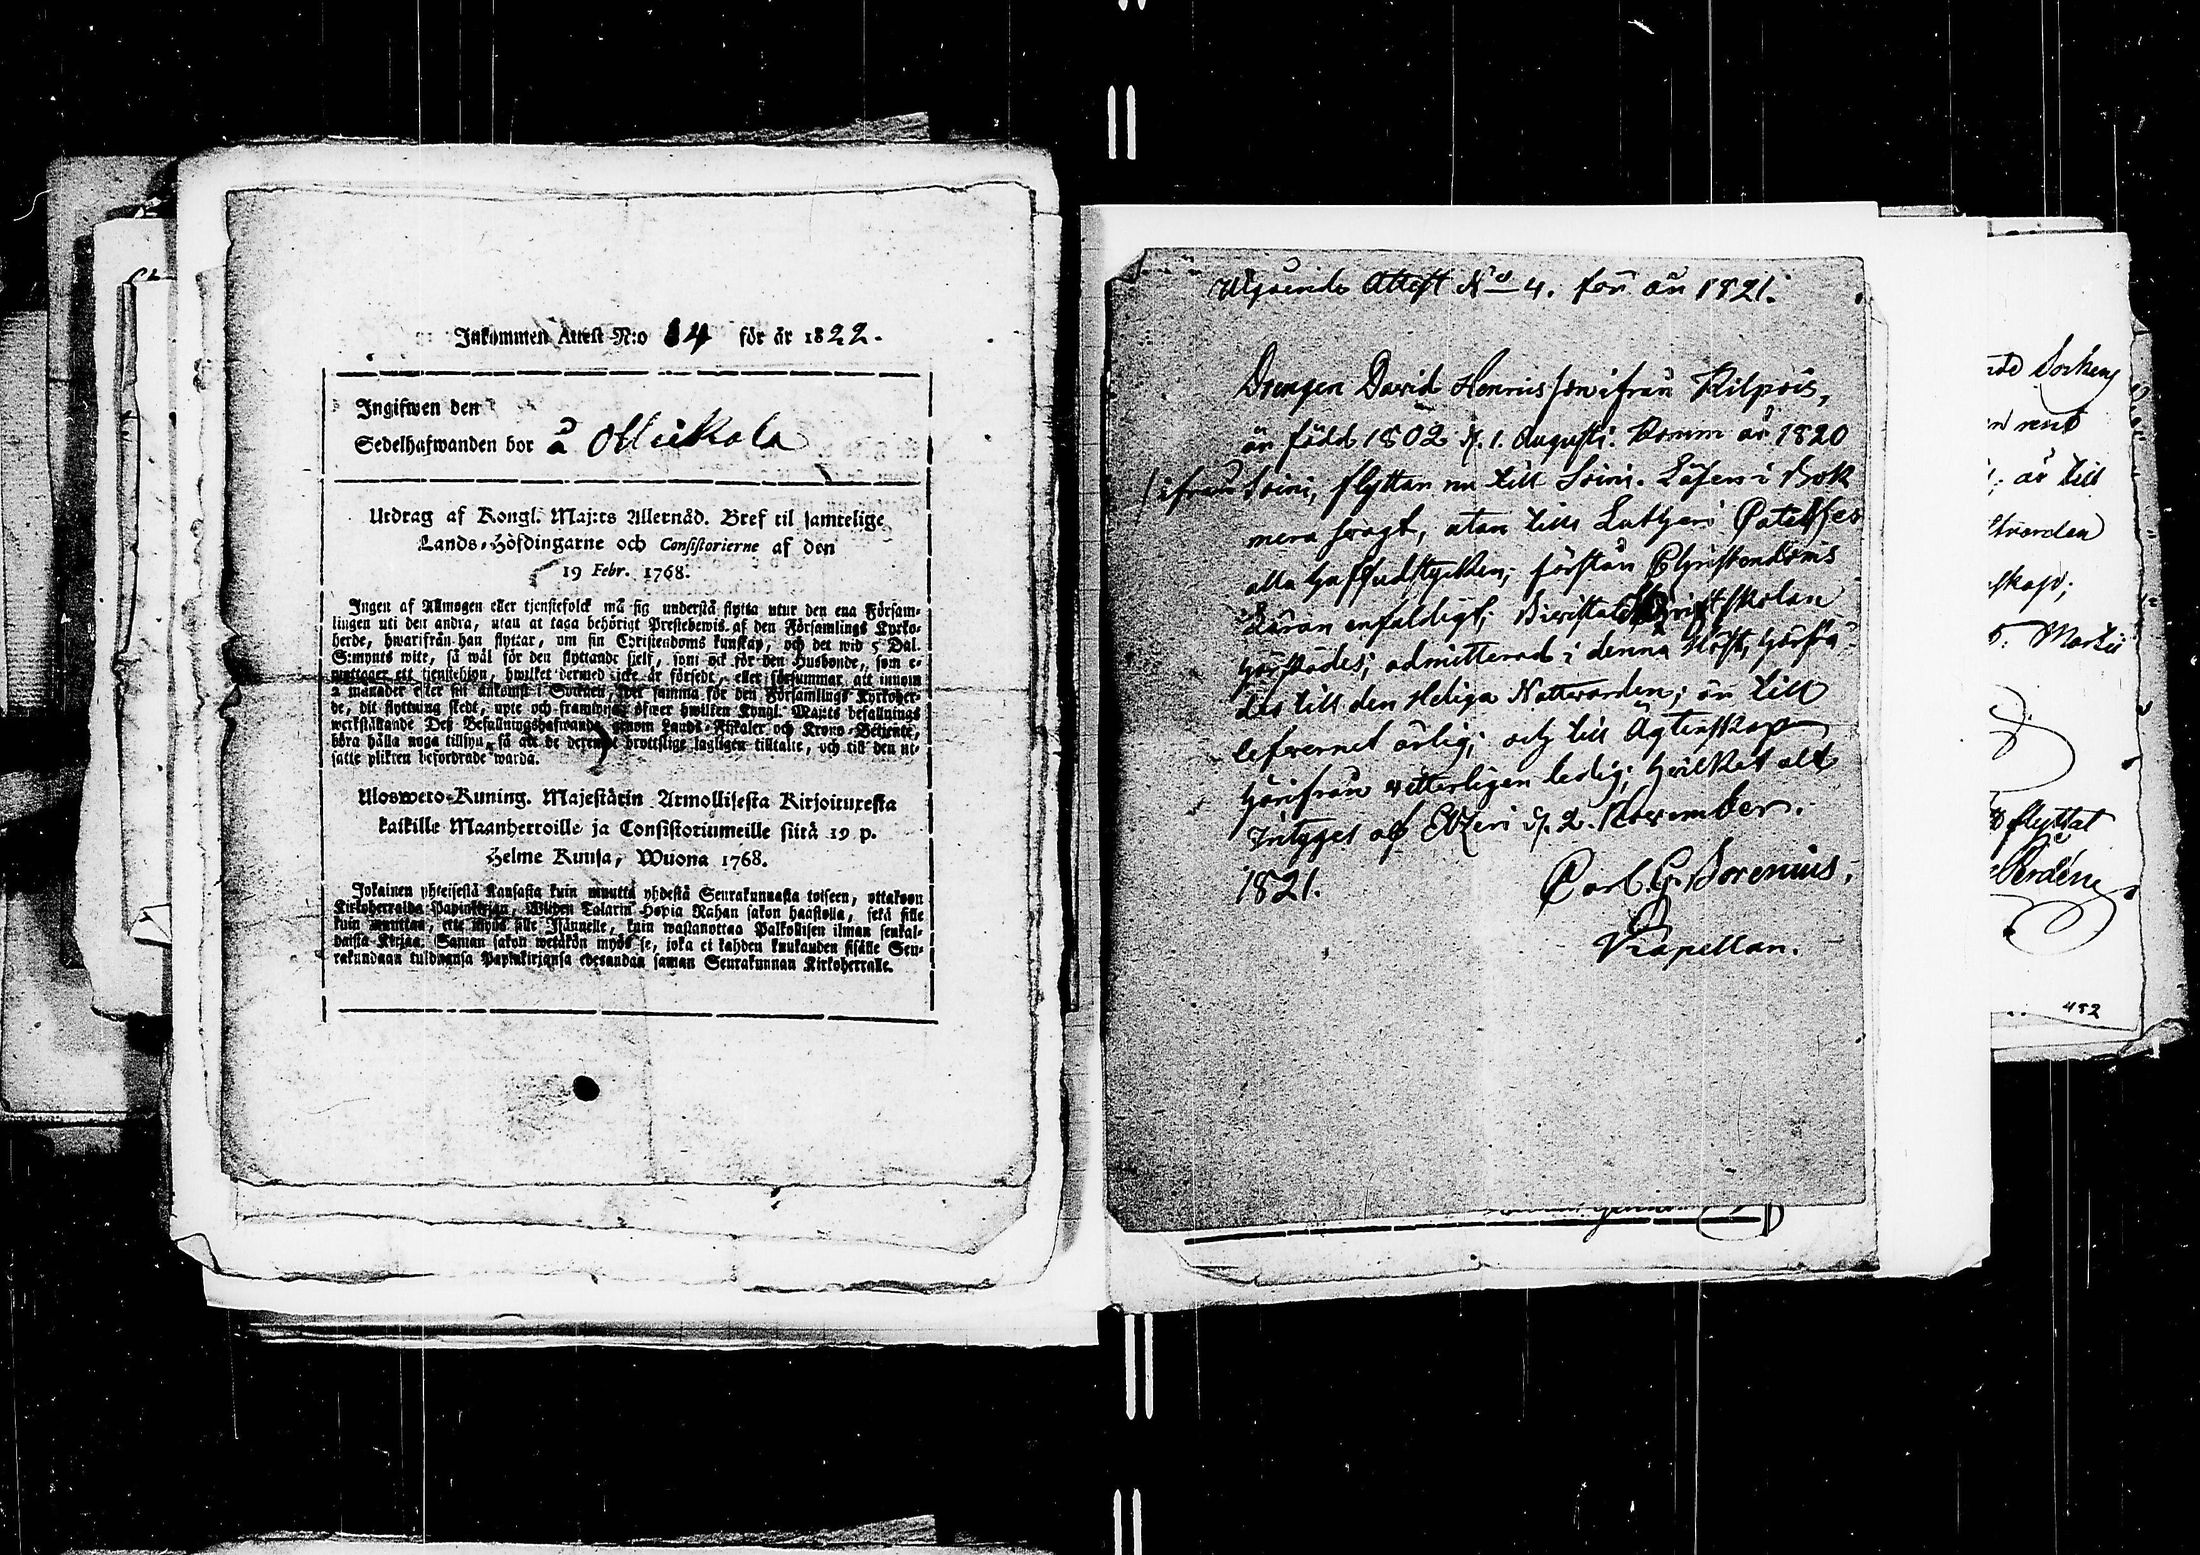 Inkommen Attest N:o 14 för år 1822.
Ingifwen den
Sedelhafwanden bor å Ollickala
Utdrag af Kongl. Maj:ts Allernåd. Bref til samtelige
Lands-Höfdingarne och Consistorierne af den
19 Febr. 1768.
Ingen af Allmogen eller tjenstefolck må sig understå flytta utur den ena Försam-
lingen uti den andra, utan at taga behörigt Prestebewis af den Församlings Kyrko-
herde, hwarifrån han flyttar, om sin Christendoms kunskap, och det wid 5 Dal.
S:mynts wite, så wäl för den flyttande sjelf, som ock för den Husbonde, som e-
mottager ett tjenstehjon, hwilket dermed icke är försedt, eller försummar att innom
2 månader efter sin ankomst i Socknen, det samma för den Församlings Kyrkoher-
de, dit flyttning skedt, upte och framwisa; öfwer hwilken Kongl. Maj:ts befallnings
werkställande Deß Befallningshafwande genom Lands-Fiskaler och Krono-Betjente,
böra hålla noga tillsyn, så att de deremot brottslige lagligen tilltalte, och till den ut-
satte plikten befordrade warda.
Uloswero-Kuning. Majestätin Armollisesta Kirjoituxesta
kaikille Maanherroille ja Consistoriumeille siitä 19 p.
Helme Kuusa, Wuona 1768.
Jokainen yhteisestä Kansasta kuin muutta yhdestä Seurakunnasta toiseen, ottakoon
Kirkoherralda Papinkirjan, Wijden Talarin Hopia Rahan sakon haastolla, sekä sille
kuin muuttaa, että myös sille Isännelle, kuin wastanottaa Palkollisen ilman senkal-
daista Kirjaa. Saman sakon wetäkön myös se, joka ei kahden kuukauden sisälle Seu-
rakundaan tulduansa Papinkirjansa edesanna saman Seurakunnan Kirkoherralle.
Utgående Attest No 4. för år 1821.
Drengen David Henrics son ifrån Kilpois,
är född 1802 d. 1. Augusti. Komm år 1820
ifrån Soini, flyttar nu till Soini. Läser i Bok
mera svagt, utan till Luthers Cateches
alla hufvudstycken; förstår Christendoms
läran enfaldigt; Bevistat Skriftskolan
härstädes; admitterad i denna Höst, härstä-
des till den Heliga Nattvarden; är till
lefvernet ärlig; och till Ägtenskap
härifrån vitterligen ledig; hvilket allt
Intyges af Etzeri d. 2. November.
1821.
Carl G. Borenius,
Kapellan.
Socken
är till
Martii
flyttat
452